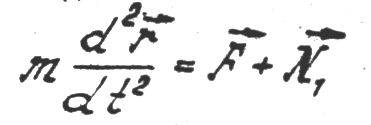 m d²r⃗/dt² = F⃗ + N⃗₁